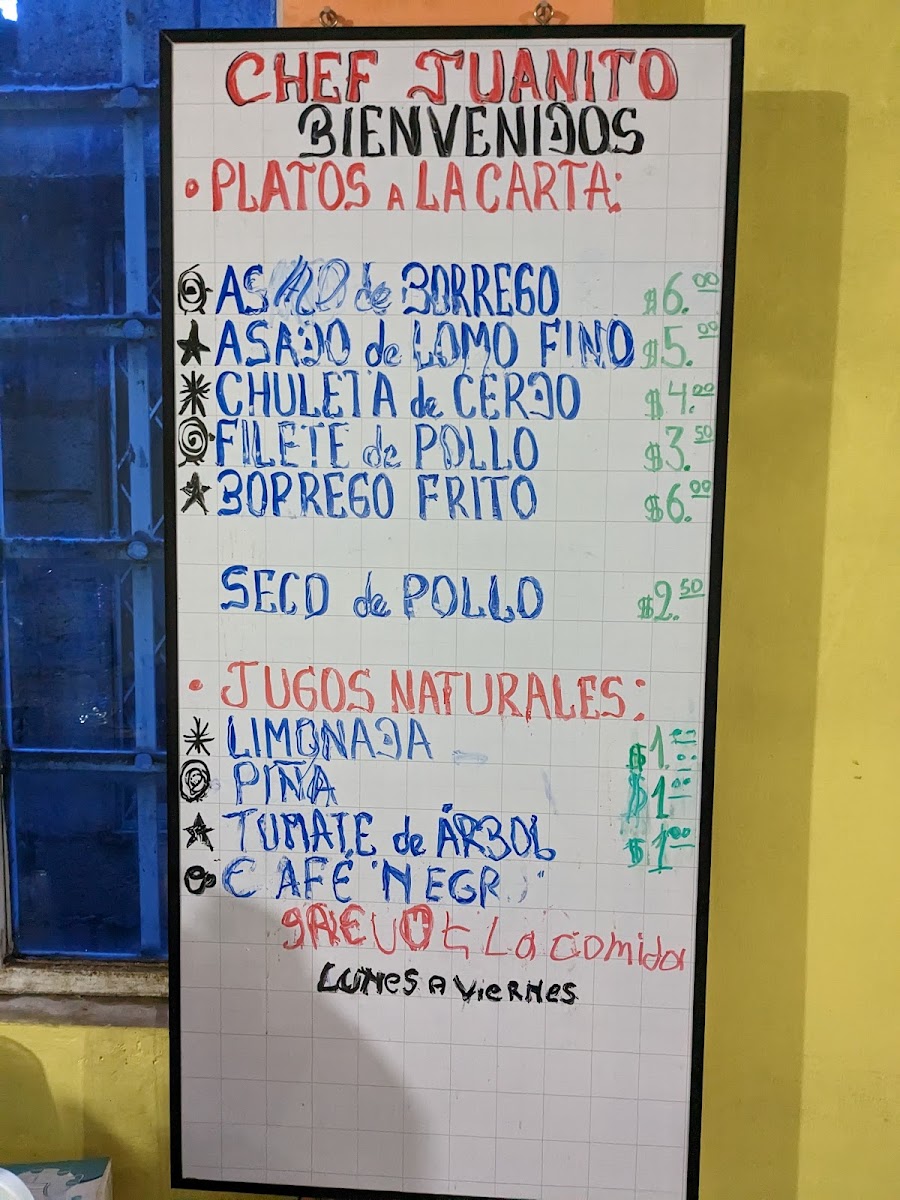 CHEF JUANITO
BIENVENIDOS
• PLATOS A LA CARTA:
ASADO de BORREGO $6.00
ASADO de LOMO FINO $5.00
CHULETA de CERDO $4.00
FILETE de POLLO $3.50
BORREGO FRITO $6.00
SECO de POLLO $2.50
• JUGOS NATURALES:
LIMONADA $1.00
PIÑA $1.00
TUMATE de ÁRBOL $1.00
CAFÉ "NEGRO"
La comida
LUNES A VIERNES